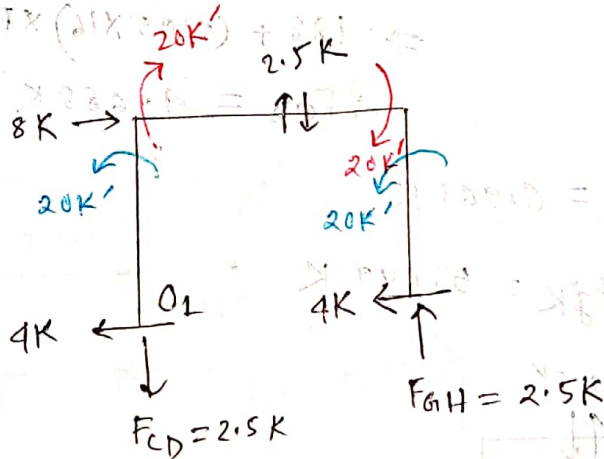 20K'
2.5K
8K
20K'
20K'
20K'
O1
4K
4K
FCD = 2.5K
FGH = 2.5K